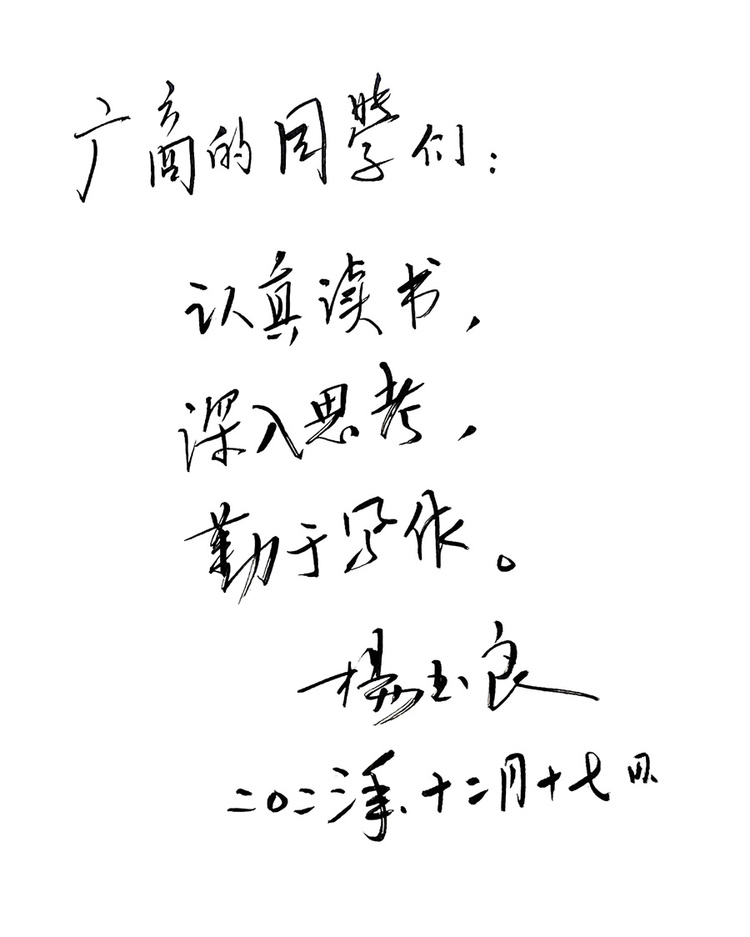 广商的同學们：
认真读书，
深入思考，
勤于写作。
楊玉良
二〇二三年、十二月十七日